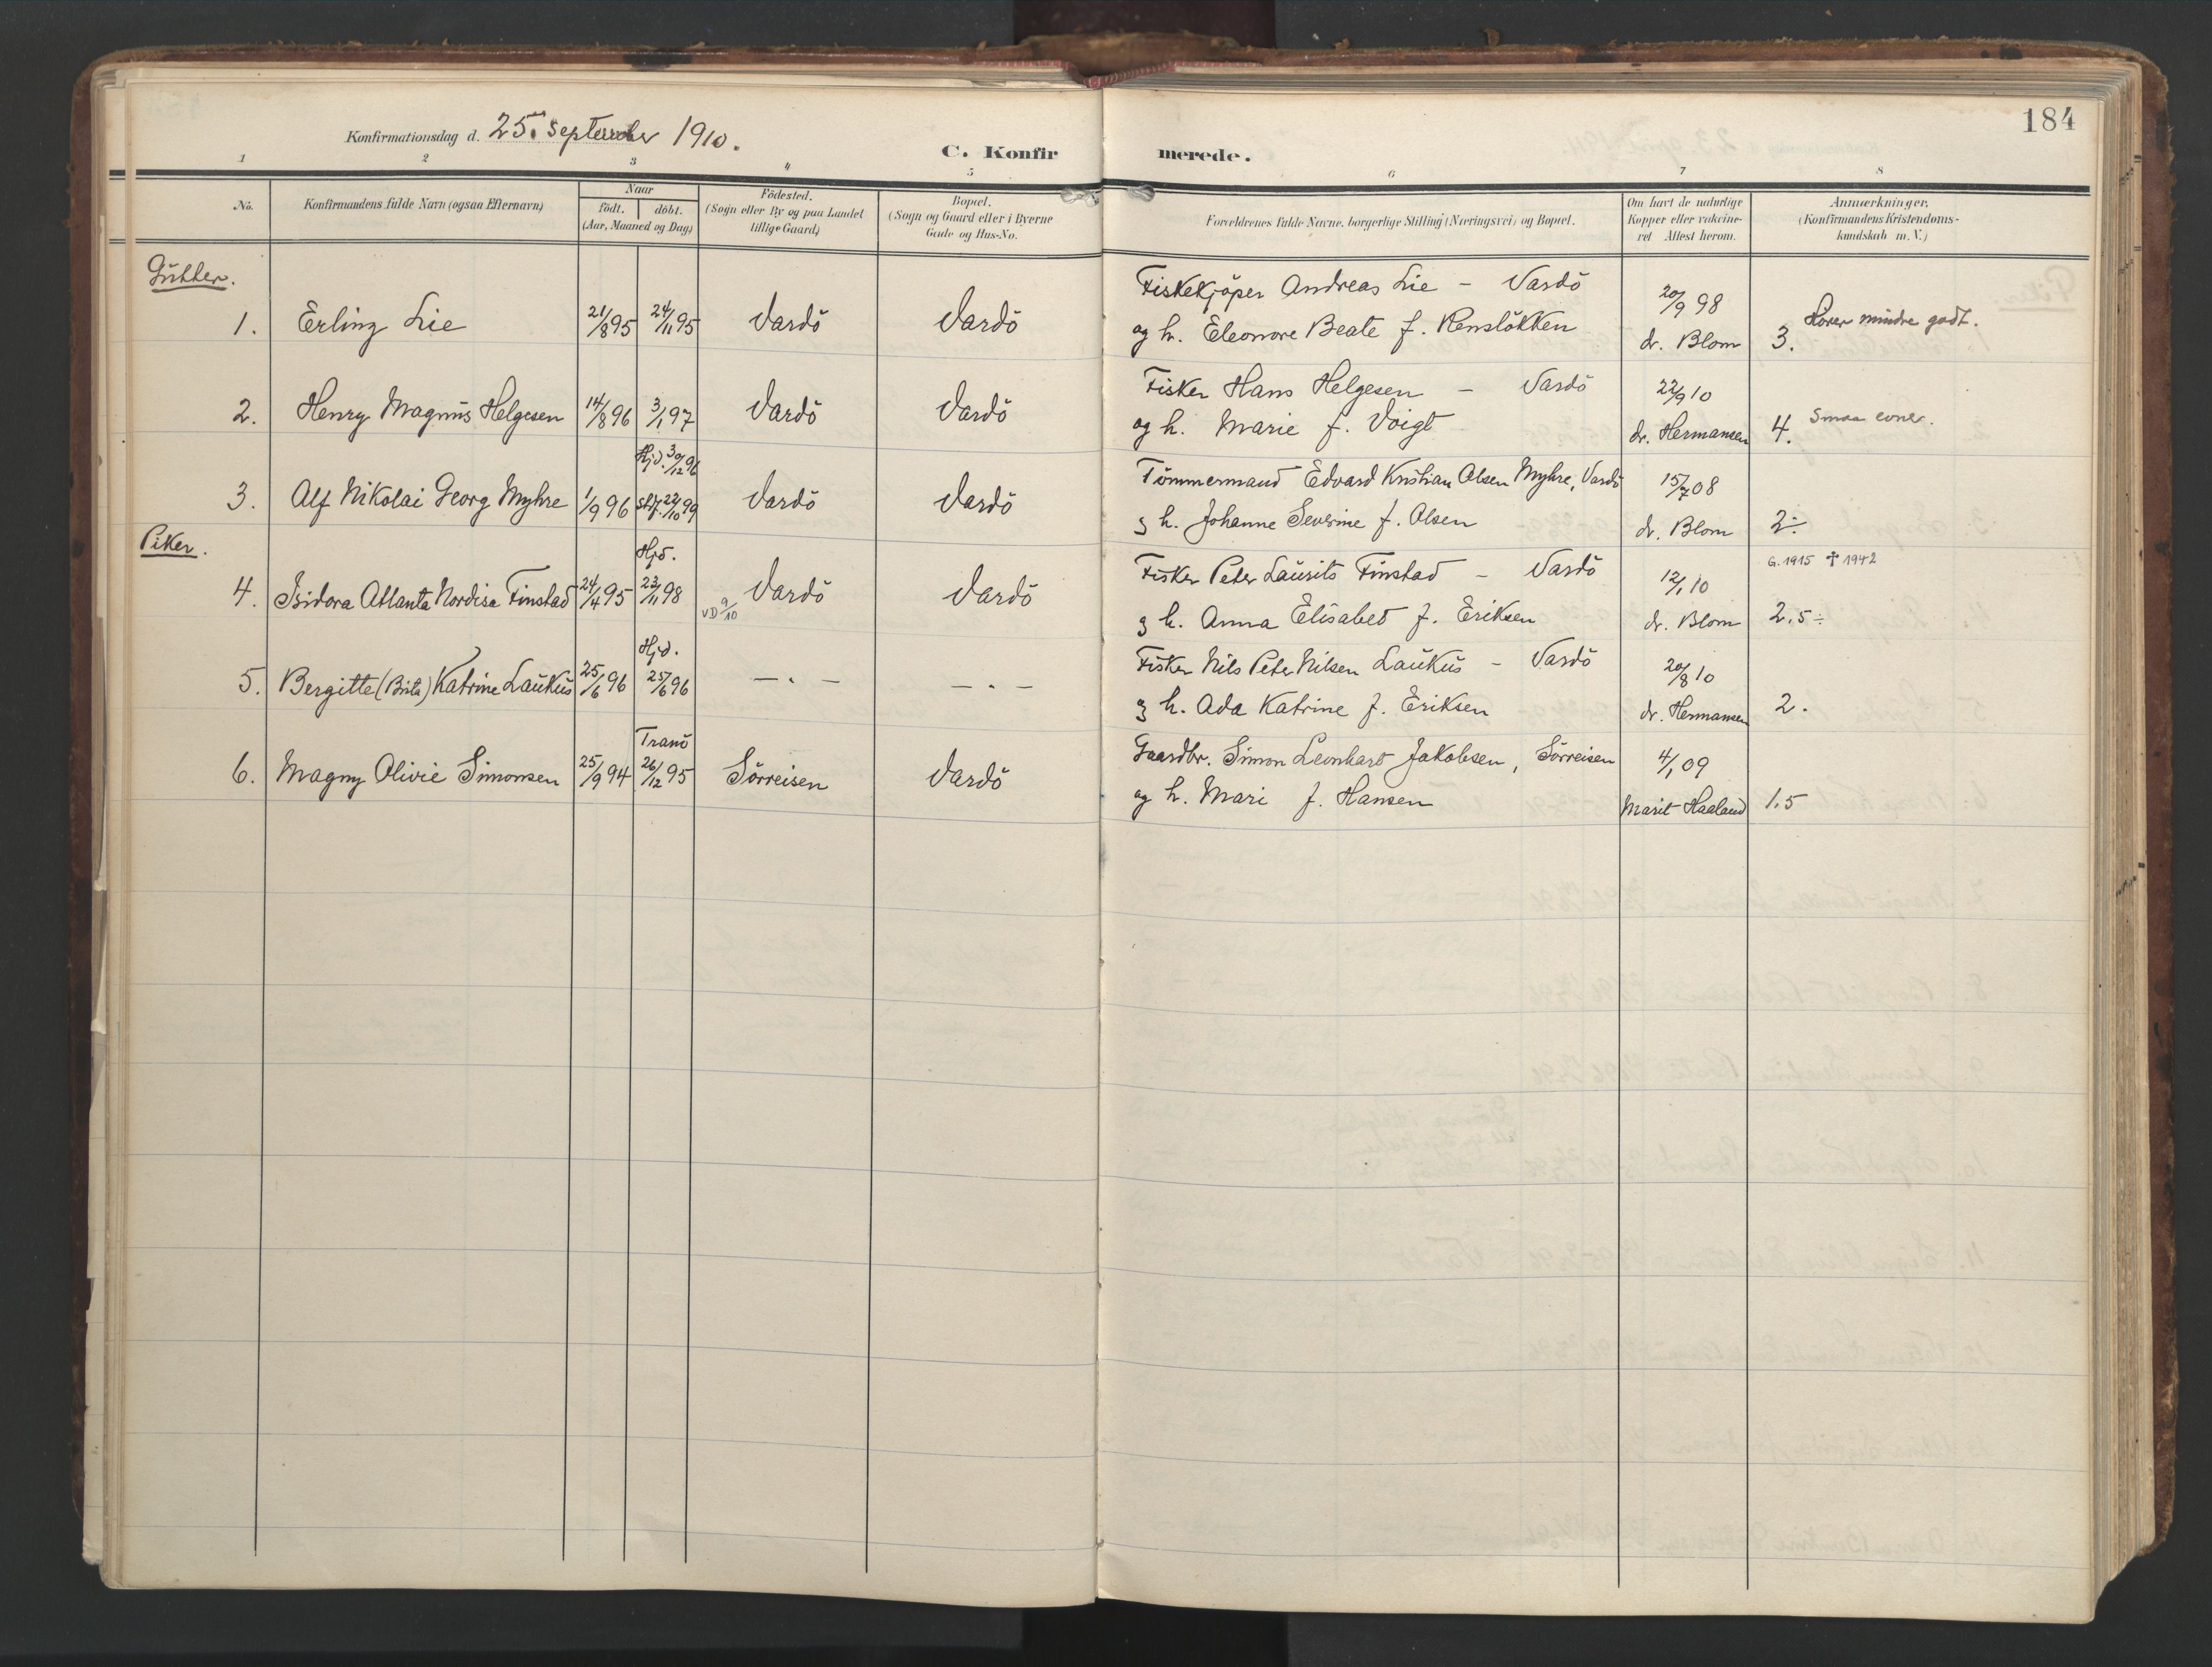 184
Konfirmationsdag d. 25. september 1910.
C. Konfirmerede.
1 2 3 4 5 6 7 8
No.
Konfirmandens fulde Navn (ogsaa Efternavn)
Naar
født. døbt.
(Aar, Maaned og Dag)
Fødested.
(Sogn eller By og paa Landet
tillige Gaard)
Bopæl.
(Sogn og Gaard eller i Byerne
Gade og Hus-No.
Forældrenes fulde Navne, borgerlige Stilling (Næringsvei) og Bopæl.
Om havt de naturlige
Kopper eller vakcine-
ret Attest herom.
Anmærkninger.
(Konfirmandens Kristendoms-
kundskab m. V.)
Gutter.
1. Erling Lie 21/8 95 24/11 95 Vardö Vardö
Fiskekjöper Andreas Lie - Vardö
og h. Eleonore Beate f. Renslökken
20/9 98
dr. Blom
3. Hører mindre godt.
2. Henry Magnus Helgesen 14/8 96 3/1 97 Vardö Vardö
Fisker Hans Helgesen - Vardö
og h. Marie f. Voigt
22/9 10
dr. Hermansen
4. Smaa evner.
Hjd. 30/12 96
3. Alf Nikolai Georg Myhre 1/9 96 22/10 99 Vardö Vardö
Tömmermand Edvard Kristian Olsen Myhre, Vardö
g h. Johanne Severine f. Olsen
15/7 08
dr. Blom
2÷
Piker.
Hjd.
4. Isidora Atlanta Nordisa Finstad 24/4 95 23/11 98 Vardö Vardö
VD 9/10
Fisker Peter Laurits Finstad - Vardö
g h. Anna Elisabet f. Eriksen
12/1 10
dr. Blom
G. 1915 † 1942
2.5÷
Hjd.
5. Bergitte (Brita) Katrine Laukus 25/6 96 25/6 96 — . — — . —
Fisker Nils Peter Nilsen Laukus - Vardö
g h. Ada Katrine f. Eriksen
20/8 10
dr. Hermansen
2.
Tranö
6. Magny Olivie Simonsen 25/9 94 26/12 95 Sörreisen Vardö
Gaardbr. Simon Leonhard Jakobsen, Sörreisen
og h. Mari f. Hansen
4/1 09
Marit Haaland
1.5